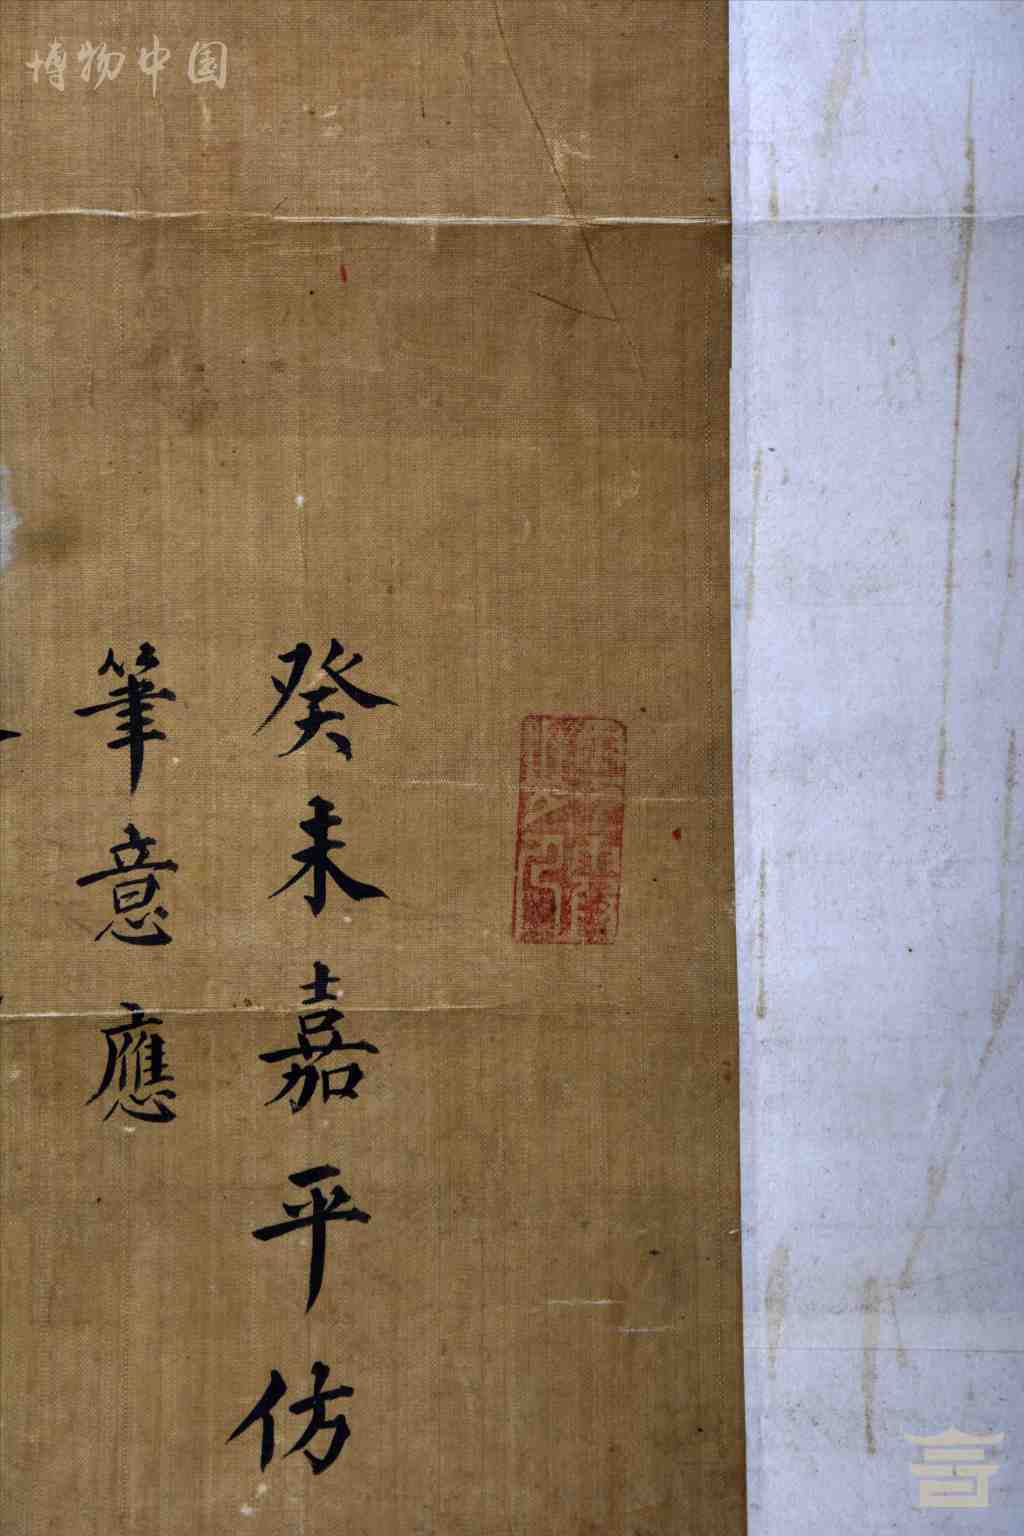 博物中国
癸未嘉平仿
筆意應